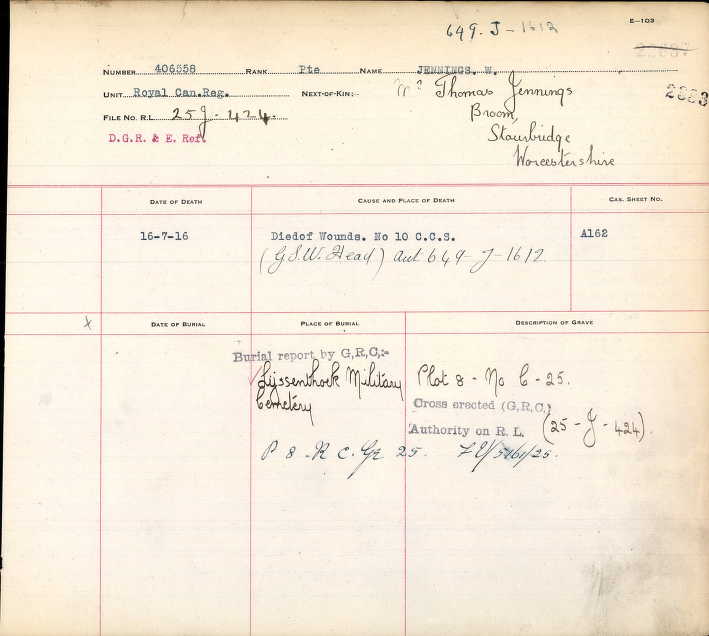 649-J-1612
E-103
NUMBER 406558 RANK Pte NAME JENNINGS. W.
UNIT Royal Can.Reg. NEXT-OF-KIN:- Mrs Thomas Jennings
Broom,
Stourbridge
Worcestershire
2883
FILE NO. R.L. 25-J-424.
D.G.R. & E. Ref.
DATE OF DEATH CAUSE AND PLACE OF DEATH CAS. SHEET NO.
16-7-16 Diedof Wounds. No 10 C.C.S. A162
(G.S.W. Head) aut 649-J-1612
X DATE OF BURIAL PLACE OF BURIAL DESCRIPTION OF GRAVE
Burial report by G,R,C,:-
Lijssenthoek Military Plot 8 - No C - 25.
Cemetery
Cross erected (G,R,C,)
Authority on R. L. (25-J-424).
P 8 - R C. Gr 25.